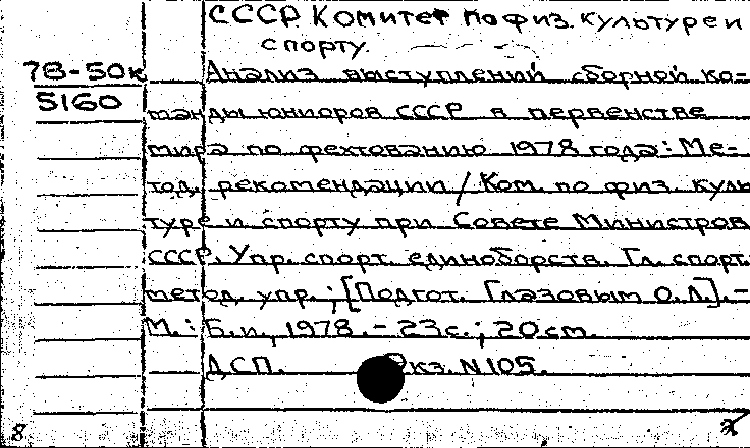 СССР. Комитет по физ. культуре и
спорту.
78-50к
5160
Анализ выступлений сборной ко-
манды юниоров СССР в первенстве
мира по фехтованию 1978 года: Ме-
тод. рекомендации / Ком. по физ. куль
туре и спорту при Совете Министров
СССР. Упр. спорт. единоборств. Гл. спорт.
метод. упр.; [Подгот. Глазовым О.Л.].-
М.: Б.и., 1978.- 23с.; 20см.
ДСП. Экз. N105.
8